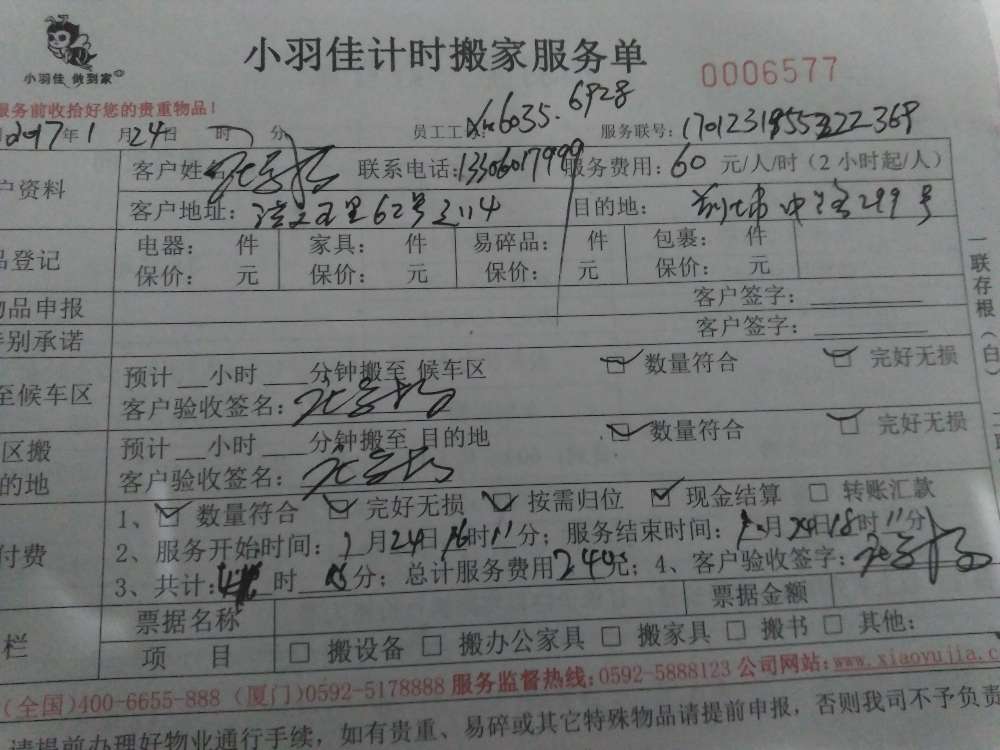 小羽佳 做到家
小羽佳计时搬家服务单
0006577
服务前收拾好您的贵重物品！
2017年1月24日 时 分 员工工 6035. 6928 服务联号：
户资料 客户姓名 联系电话：13306017999 服务费用：60 元/人/时（2小时起/人）
客户地址： 里62号 目的地： 299号
品登记 电器： 件 家具： 件 易碎品： 件 包裹： 件
保价： 元 保价： 元 保价： 元 保价： 元
物品申报 客户签字：
特别承诺 客户签字：
一联存根（白）
至候车区 预计 小时 分钟搬至 候车区 数量符合 完好无损
客户验收签名：
区搬 预计 小时 分钟搬至 目的地 数量符合 完好无损
的地 客户验收签名：
1、 数量符合 完好无损 按需归位 现金结算 转账汇款
付费 2、服务开始时间：1月24日16时11分；服务结束时间：1月24日18时11分
3、共计： 时 分；总计服务费用244元；4、客户验收签字：
票据名称 票据金额
栏 项 目 搬设备 搬办公家具 搬家具 搬书 其他：
(全国)400-6655-888 (厦门)0592-5178888 服务监督热线：0592-5888123 公司网站：www.xiaoyujia.c
请提前办理好物业通行手续，如有贵重、易碎或其它特殊物品请提前申报，否则我司不予负责